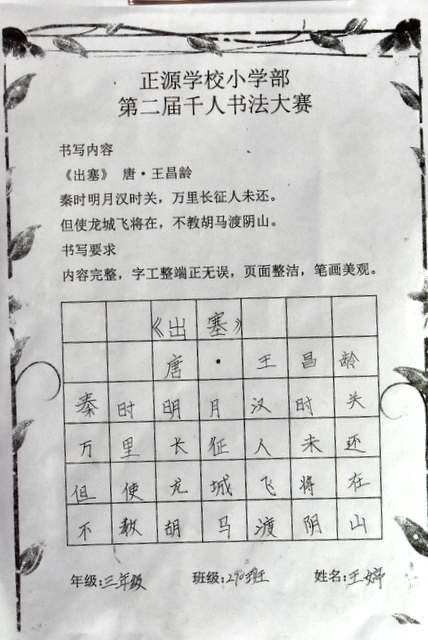 正源学校小学部
第二届千人书法大赛
书写内容
《出塞》 唐·王昌龄
秦时明月汉时关，万里长征人未还。
但使龙城飞将在，不教胡马渡阴山。
书写要求
内容完整，字工整端正无误，页面整洁，笔画美观。
《出塞》
唐·王昌龄
秦时明月汉时关
万里长征人未还
但使龙城飞将在
不教胡马渡阴山
年级:三年级 班级:290班 姓名:王婷